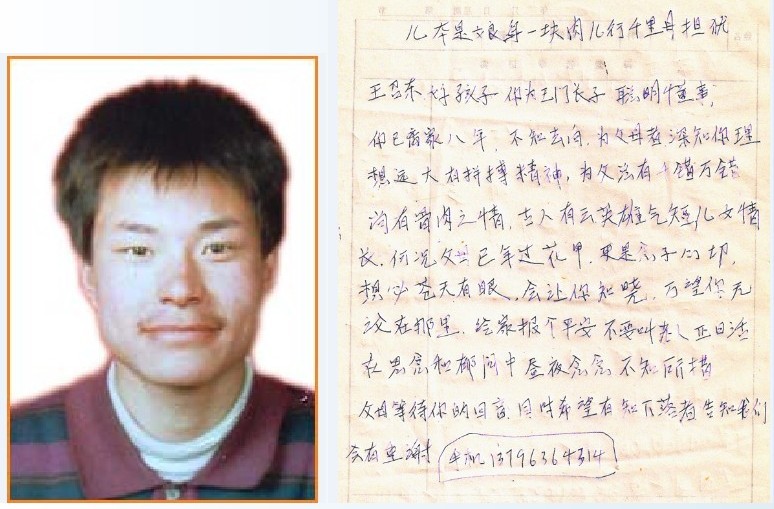 儿本是娘身一块肉儿行千里母担忧
王召东 好孩子 你为王门长子 聪明懂事,
你已离家八年,不知去向,为父母者深知你理
想远大有拼搏精神,为父没有千错万错
有骨肉之情,古人有云英雄气短儿女情
长,何况父母已年过花甲,更是念子心切,
想必苍天有眼,会让你知晓,万望你无
论在那里,给家报个平安 不要叫老人正日活
在思念和郁闷中昼夜念念 不知所措
父母等待你的回音,同时希望有知下落者告知我们
会有重谢 手机 13796364314